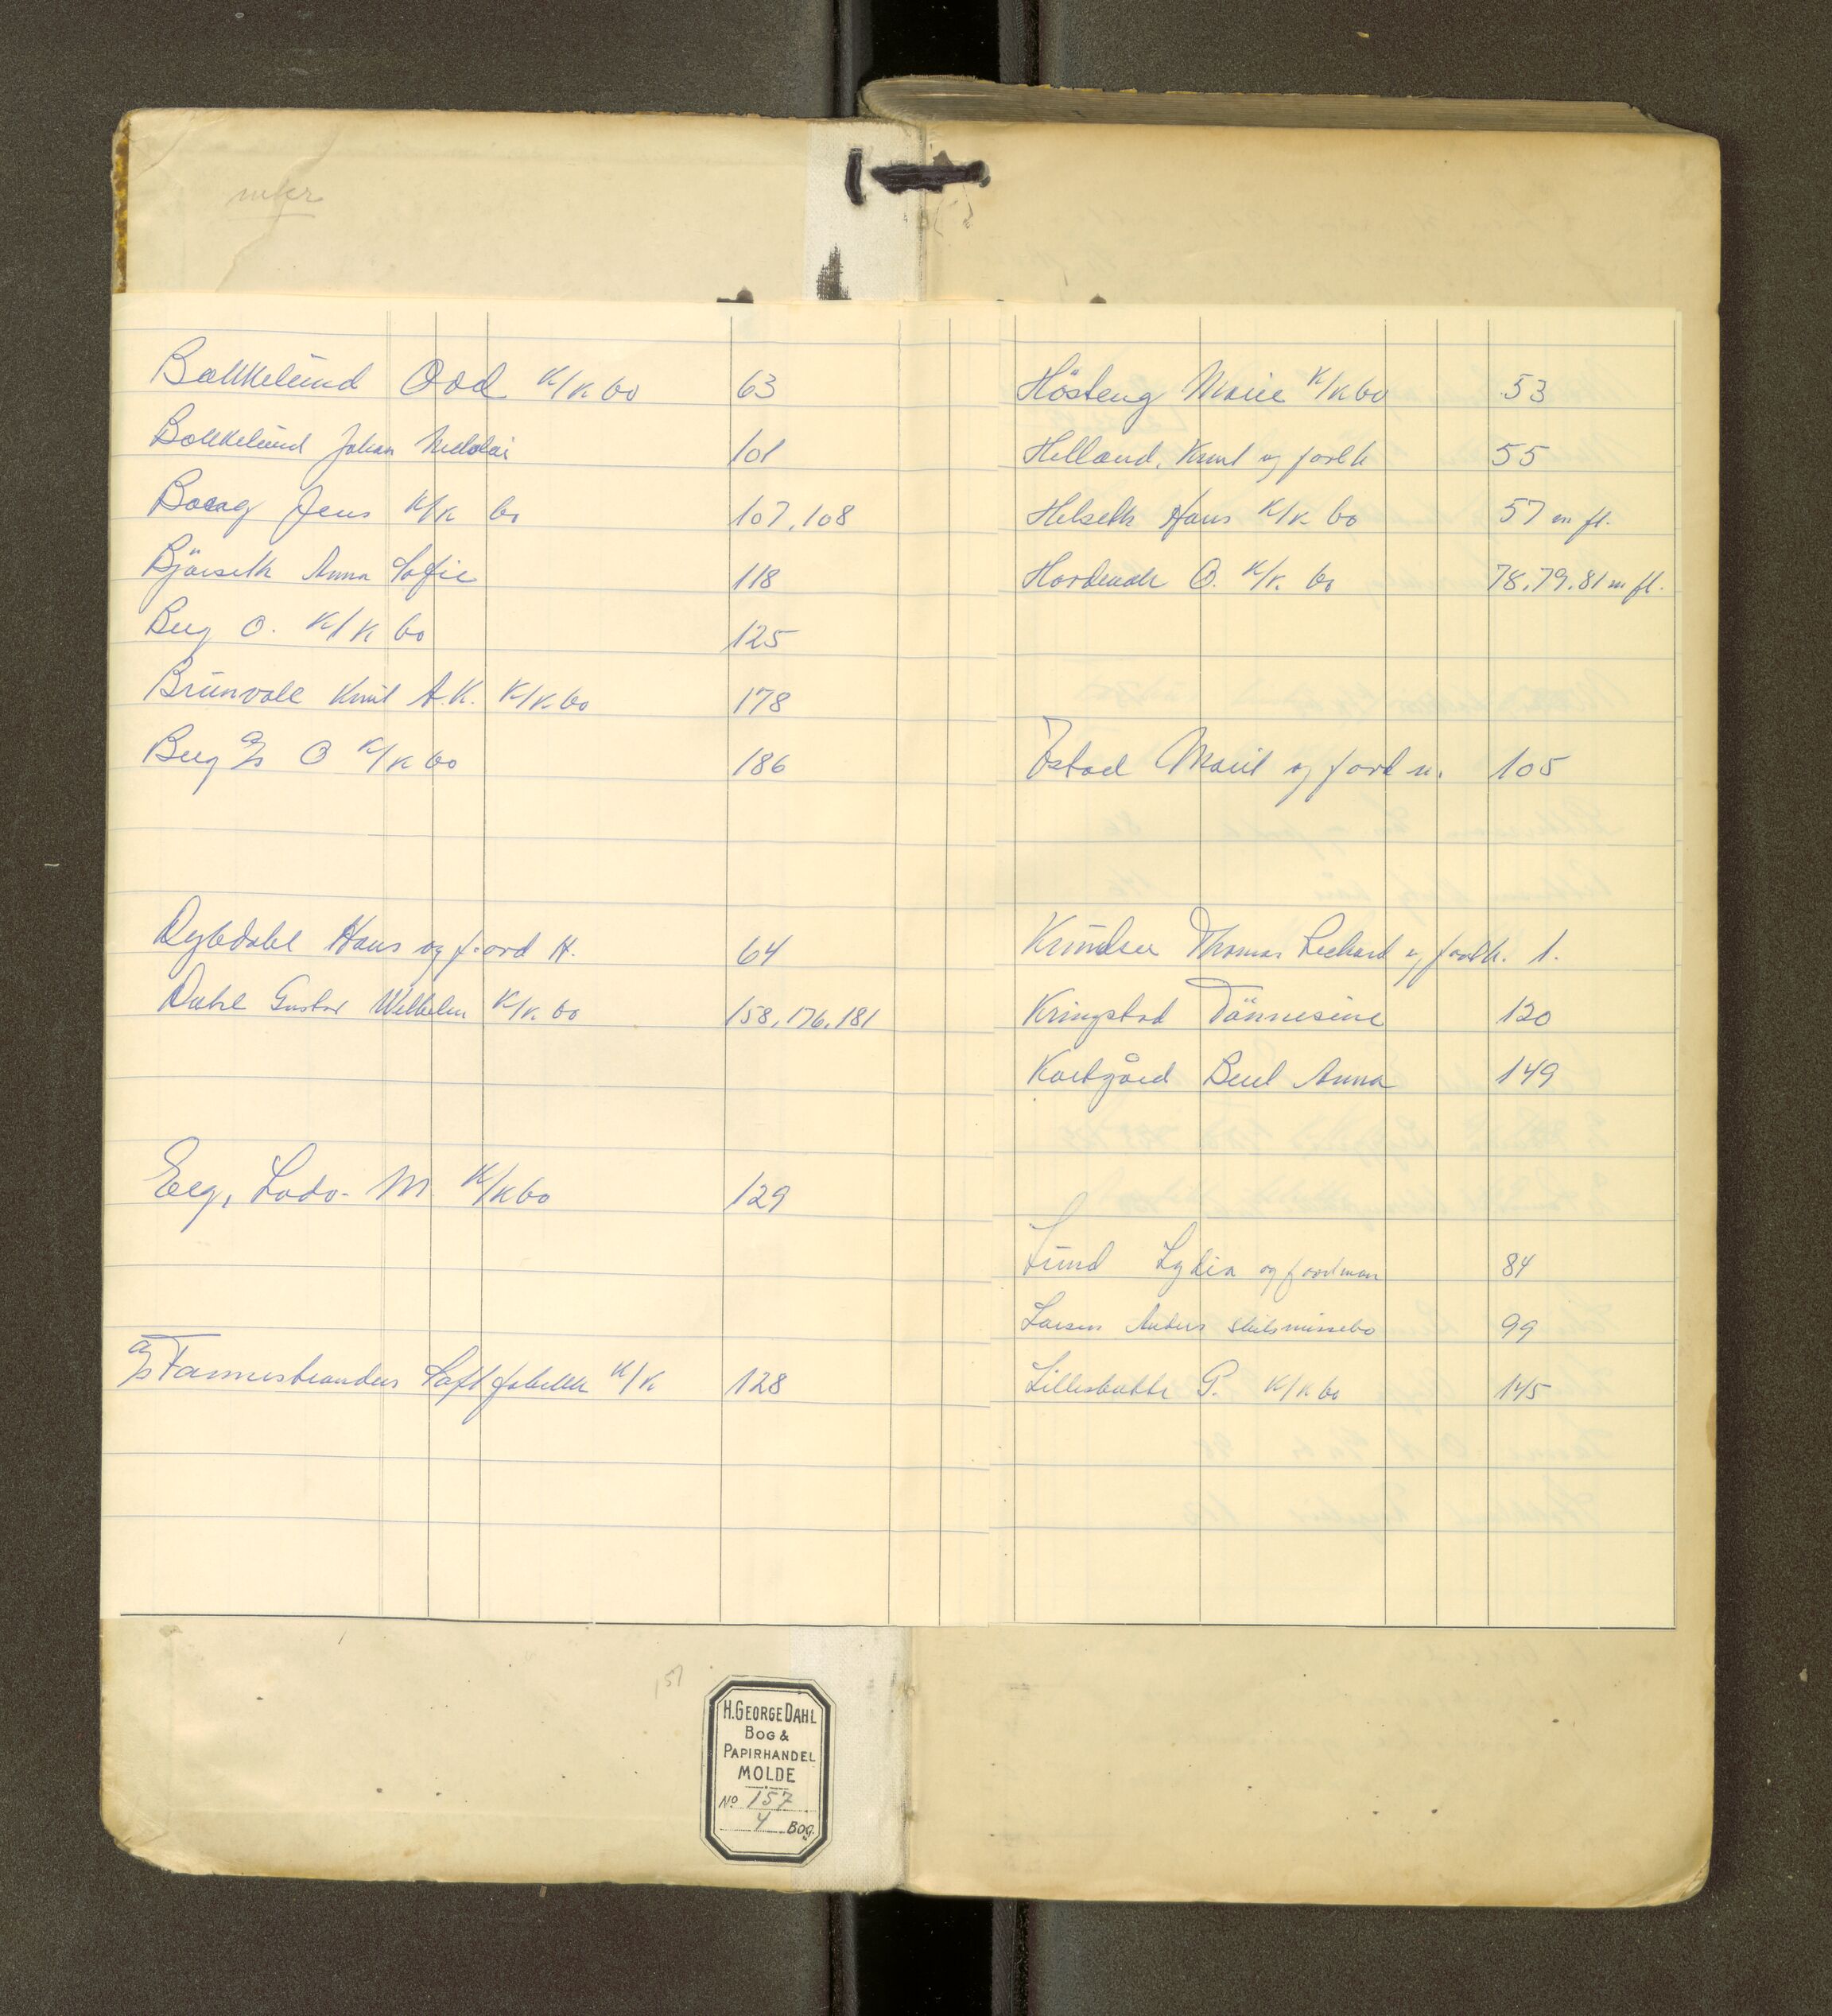 Bakkelund Odd K/K bo 63
Bakkelund Johan Nicolai 101
Boeag Jens K/K bo 107, 108
Björseth Anna Sofie 118
Berg O. K/K bo 125
Brunvoll Knut A.K. K/K bo 178
Berg A/S O K/K bo 186
Dybdahl Hans og ford H. 64
Dahl Gustav Wilhelm K/K. bo 158, 176, 181
Eeg, Lodv. M K/K bo 129
A/S Fannestrandens Saftfabrikk K/K 128
Hösteng Marie K/K bo 53
Helland, Knut og ford h 55
Helseth Hans K/K bo 57 m fl.
Hardevall O. K/K. bo 78, 79, 81 m fl.
Istad Marit og ford m. 105
Knudsen Thomas Richard og ford h. 1.
Kringstad Tönnesine 120
Kortgård Berit Anna 149
Lund Lydia og ford man 84
Larsen Anders skilsmissebo 99
Lillebakk P. K/K bo 145
H. GEORGE DAHL
BOG &
PAPIRHANDEL
MOLDE
No 157
4 BOG.